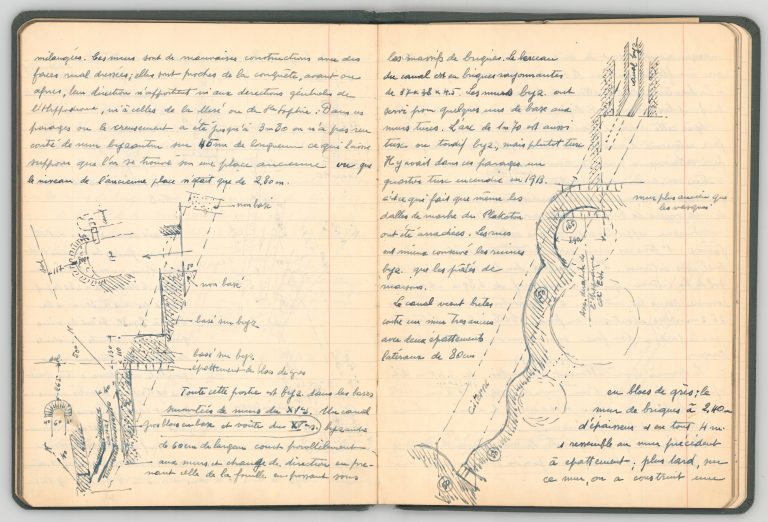 mélangées. Ces murs sont de mauvaises constructions avec des
faces mal dressées; elles sont proches de la conquête, avant ou
après, leur direction n'apportent ni aux directions générales de
l'Hippodrome, ni à celles de la Mesé ou de Ste Sophie. Dans ces
parages où le creusement a été jusqu'à 3m50 on n'a pas ren
contré de mur byzantin sur 45m de longueur ce qui laisse
supposer que l'on se trouve sur une place ancienne vu que
le niveau de l'ancienne place n'était que de 2,80m.
non basé
non basé
basé sur byz
basé sur byz
épattement de blocs de grès
Toute cette partie est byz. dans les bases
surmontées de murs du XVe s. Un canal
blocs en base et voûte du XVe s. byzantin
de 60cm de largeur court parallèlement
aux murs et change de direction en pre-
nant celle de la fouille en passant sous
canal
les massifs de briques. Le berceau
du canal est en briques rayonnantes
de 37 x 38 x 4.5. Les murs byz. ont
servi pour quelques uns de base aux
murs turcs. L'arc de 1m70 est aussi
turc ou tardif byz, mais plutôt turc
Il y avait dans ces parages un
quartier turc incendié en 1913.
c'est ce qui fait que même les
dalles de marbre du Plakoton
ont été arrachées. Les rues
ont mieux conservé les ruines
byz. que les pâtés de
maisons.
Le canal vient buter
contre un mur très ancien
avec deux épattements
latéraux de 80cm
canal byz
mur plus ancien que
les vasques
citerne
en blocs de grès; le
mur de briques à 2,40m
d'épaisseur et en tout 4m
et ressemble au mur précédent
à épattement; plus tard, sur
ce mur, on a construit une